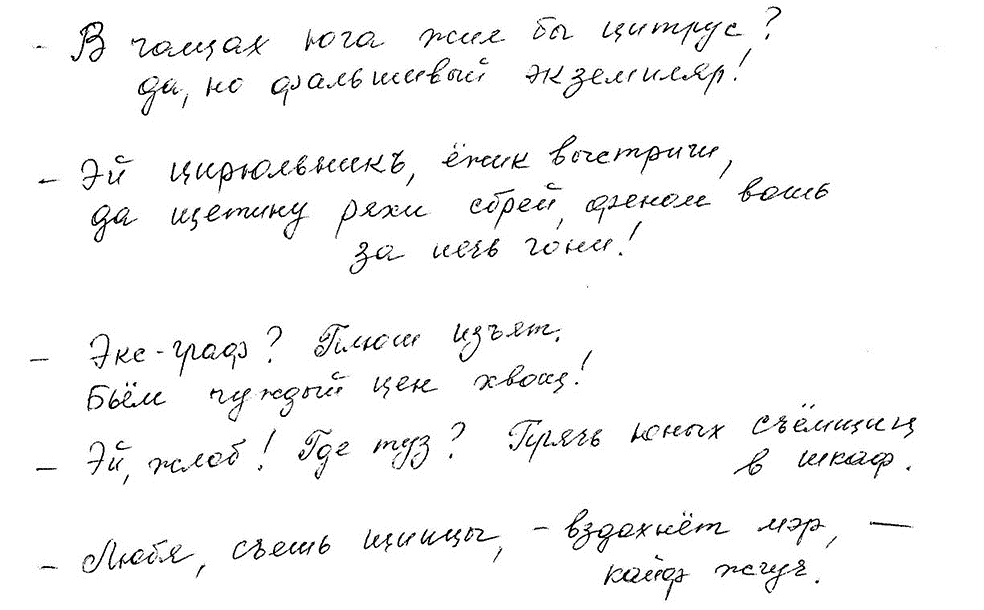 - В чащах юга жил бы цитрус?
да, но фальшивый экземпляр!
- Эй цирюльникъ, ёжик выстриги,
да щетину ряхи сбрей, феном вошь
за печь гони!
- Экс-граф? Плюш изъят.
Бьём чуждый цен хвощ!
- Эй, жлоб! Где туз? Прячь юных съёмщиц
в шкаф.
- Любя, съешь щипцы, - вздохнёт мэр, —
кайф жгуч.